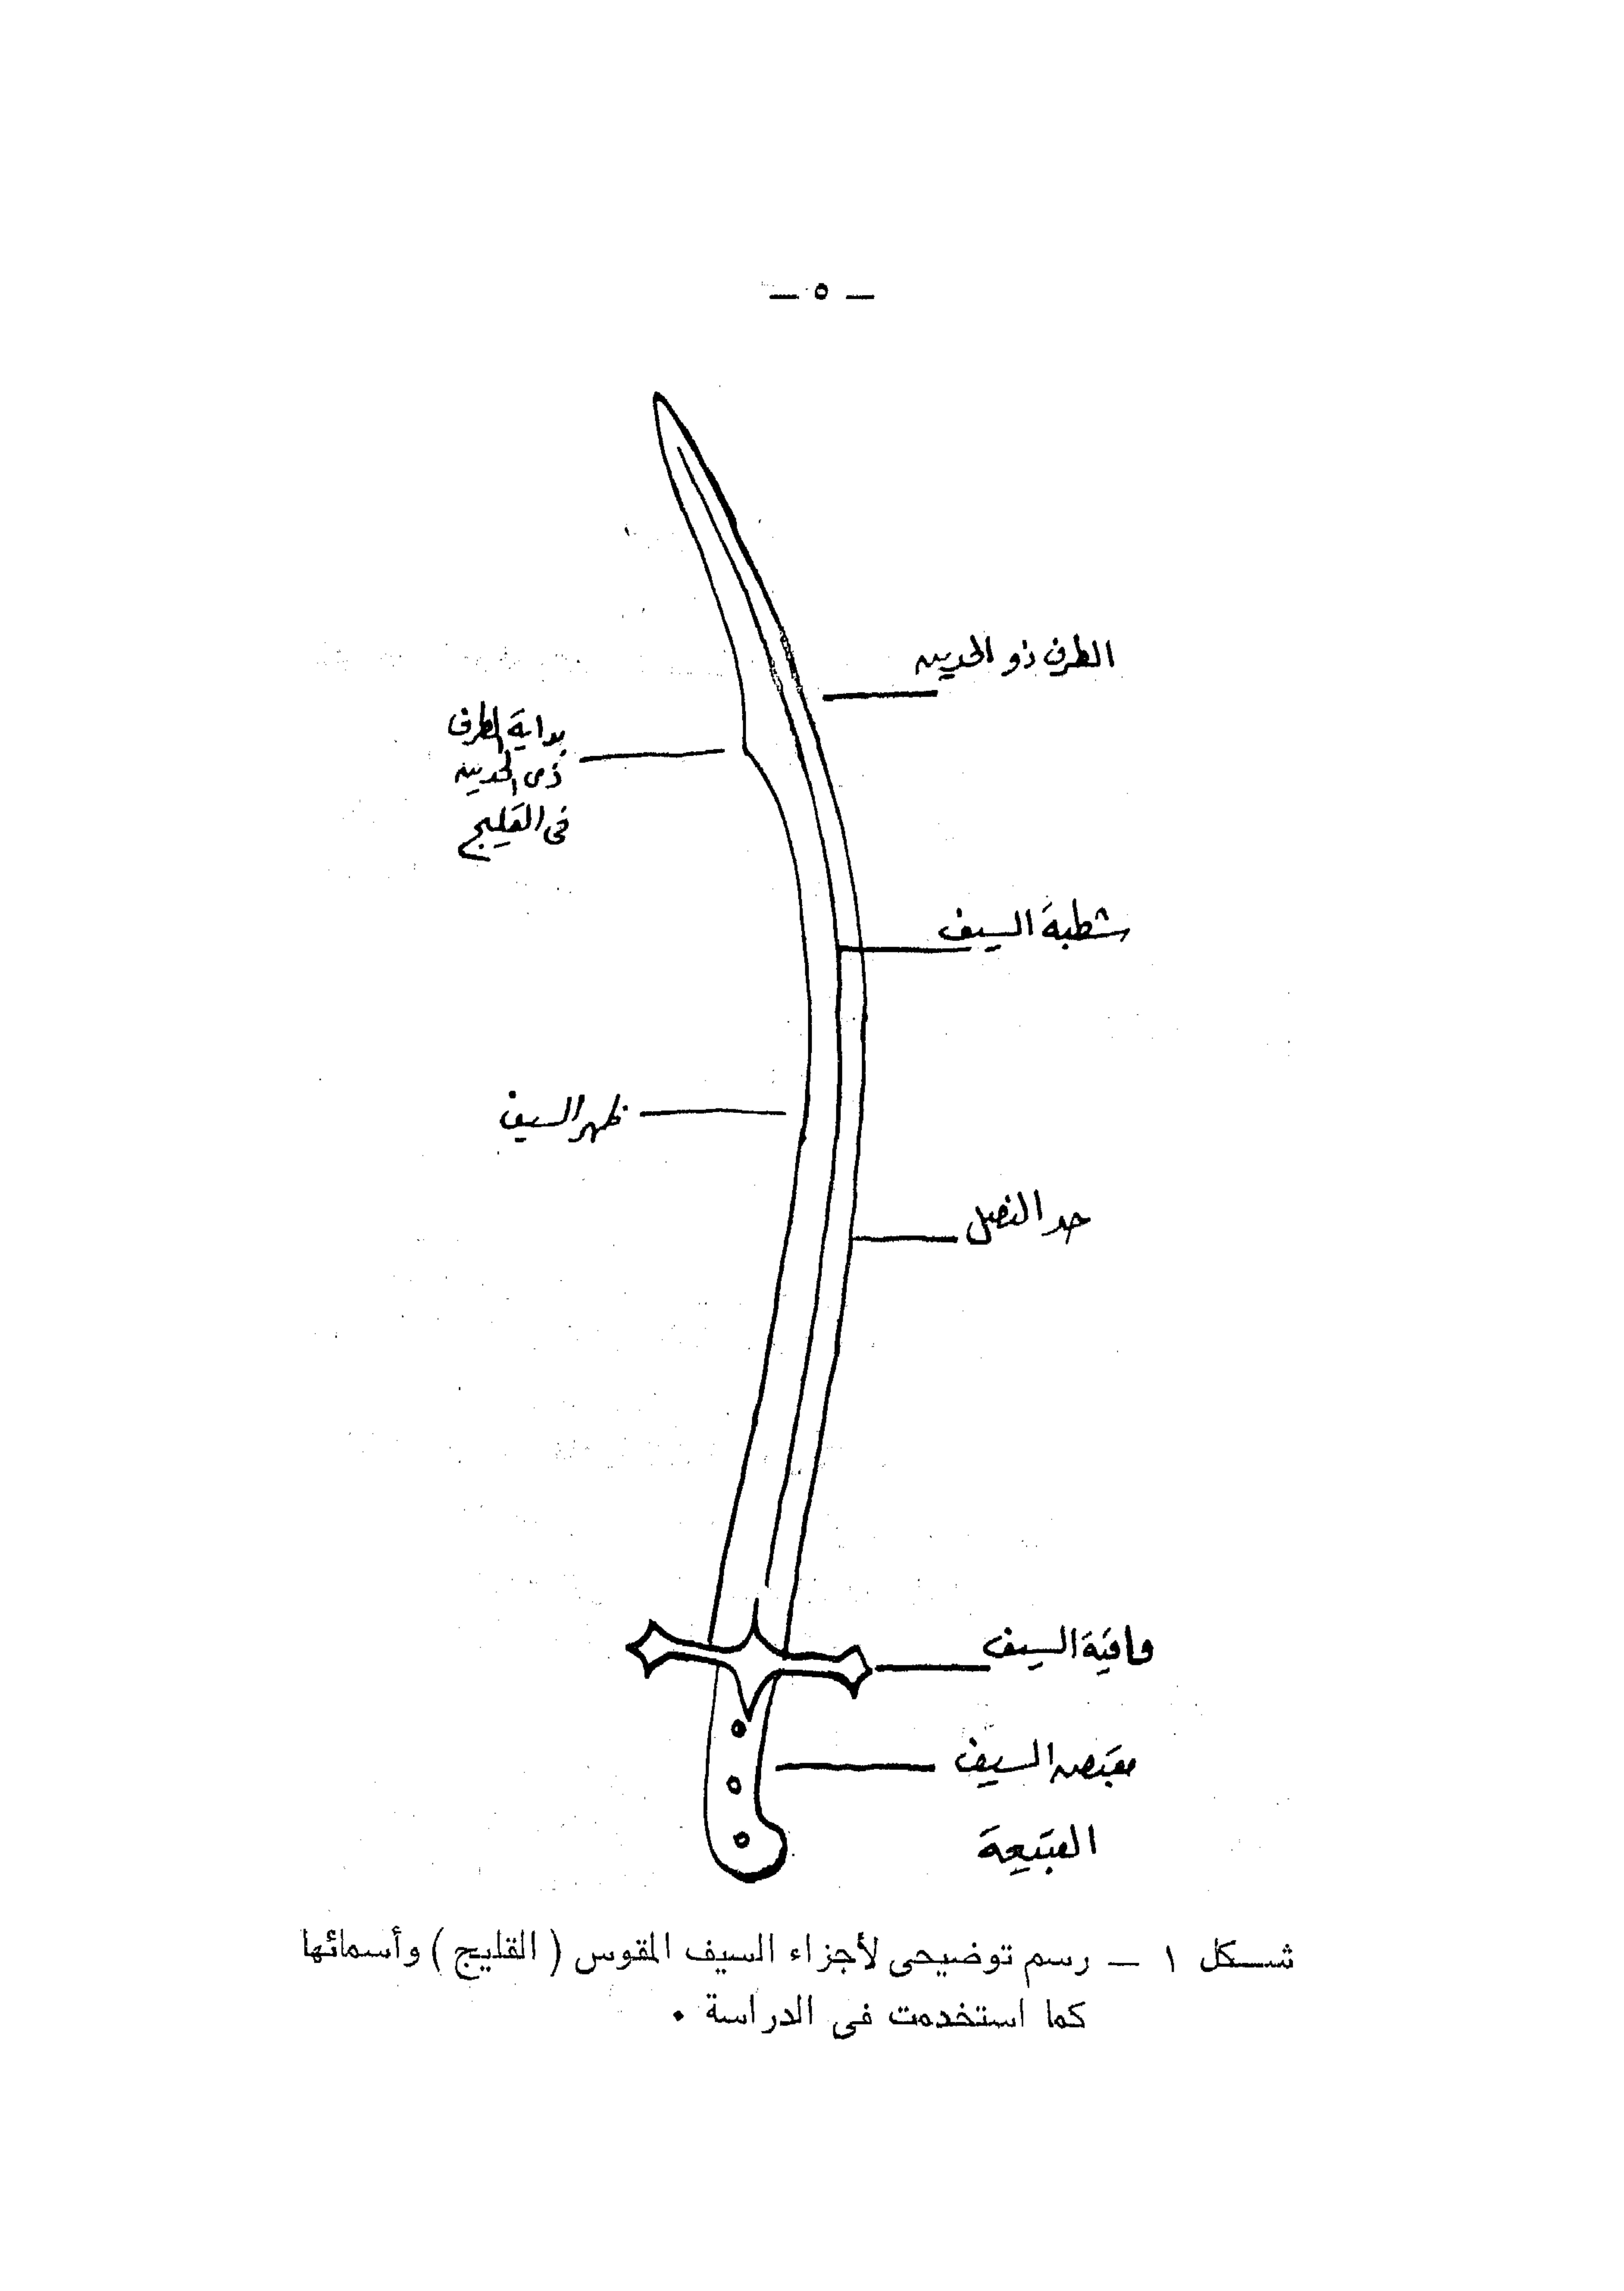 — ٥ —
الطرف ذو الحدين
بداية الطرف
ذى الحدين
فى القليج
شطبة السيف
ظهر السيف
حد النصل
واقية السيف
مقبض السيف
القبيعة
شكل ١ — رسم توضيحى لأجزاء السيف المقوس ( القليج ) وأسمائها
كما استخدمت فى الدراسة .